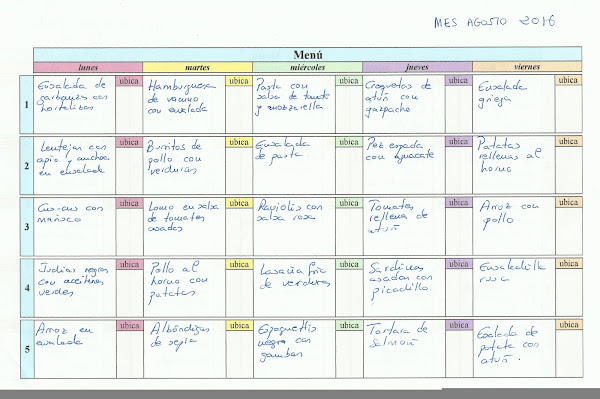 MES AGOSTO 2016
Menú
lunes martes miércoles jueves viernes
1
Ensalada de
garbanzos con
hortalizas
ubica
Hamburguesa
de vacuno
con ensalada
ubica
Pasta con
salsa de tomate
y mozzarella
ubica
Croquetas de
atún con
gazpacho
ubica
Ensalada
griega
ubica
2
Lentejas con
apio y anchoa
en ensalada
ubica
Burritos de
pollo con
verduras
ubica
Ensalada
de pasta
ubica
Pez espada
con aguacate
ubica
Patatas
rellenas al
horno
ubica
3
Cus-cus con
marisco
ubica
Lomo en salsa
de tomates
asados
ubica
Raviolis con
salsa rosa
ubica
Tomates
rellena de
atún
ubica
Arroz con
pollo
ubica
4
Judias negras
con aceitunas
verdes
ubica
Pollo al
horno con
patatas
ubica
Lasaña fria
de verduras
ubica
Sardinas
asadas con
picadillo
ubica
Ensaladilla
rusa
ubica
5
Arroz en
ensalada
ubica
Albóndigas
de sepia
ubica
Espaguettis
negro con
gambas
ubica
Tartara de
salmón
ubica
Ensalada de
patata con
atún.
ubica